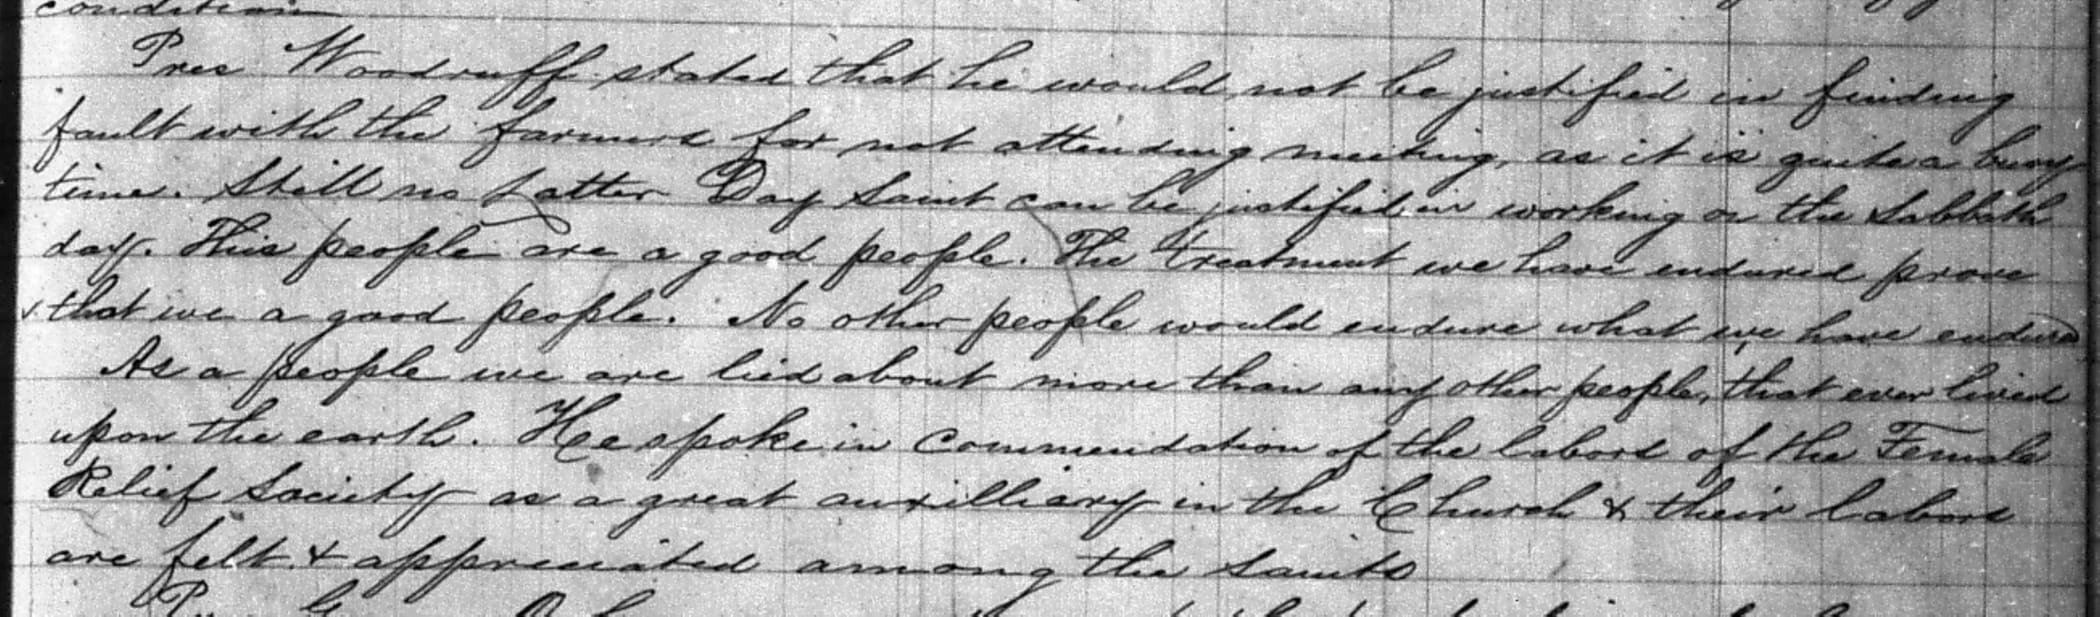 condition
Pres Woodruff stated that he would not be justified in finding
fault with the farmers for not attending meeting, as it is quite a busy
time. Still no Latter Day Saint can be justified in working on the Sabbath
day. This people are a good people. The treatment we have endured prove
that we a good people. No other people would endure what we have endured
As a people we are lied about more than any other people, that ever lived
upon the earth. He spoke in commendation of the labors of the Female
Relief Society as a great auxilliary in the Church & their labors
are felt & appreciated among the Saints